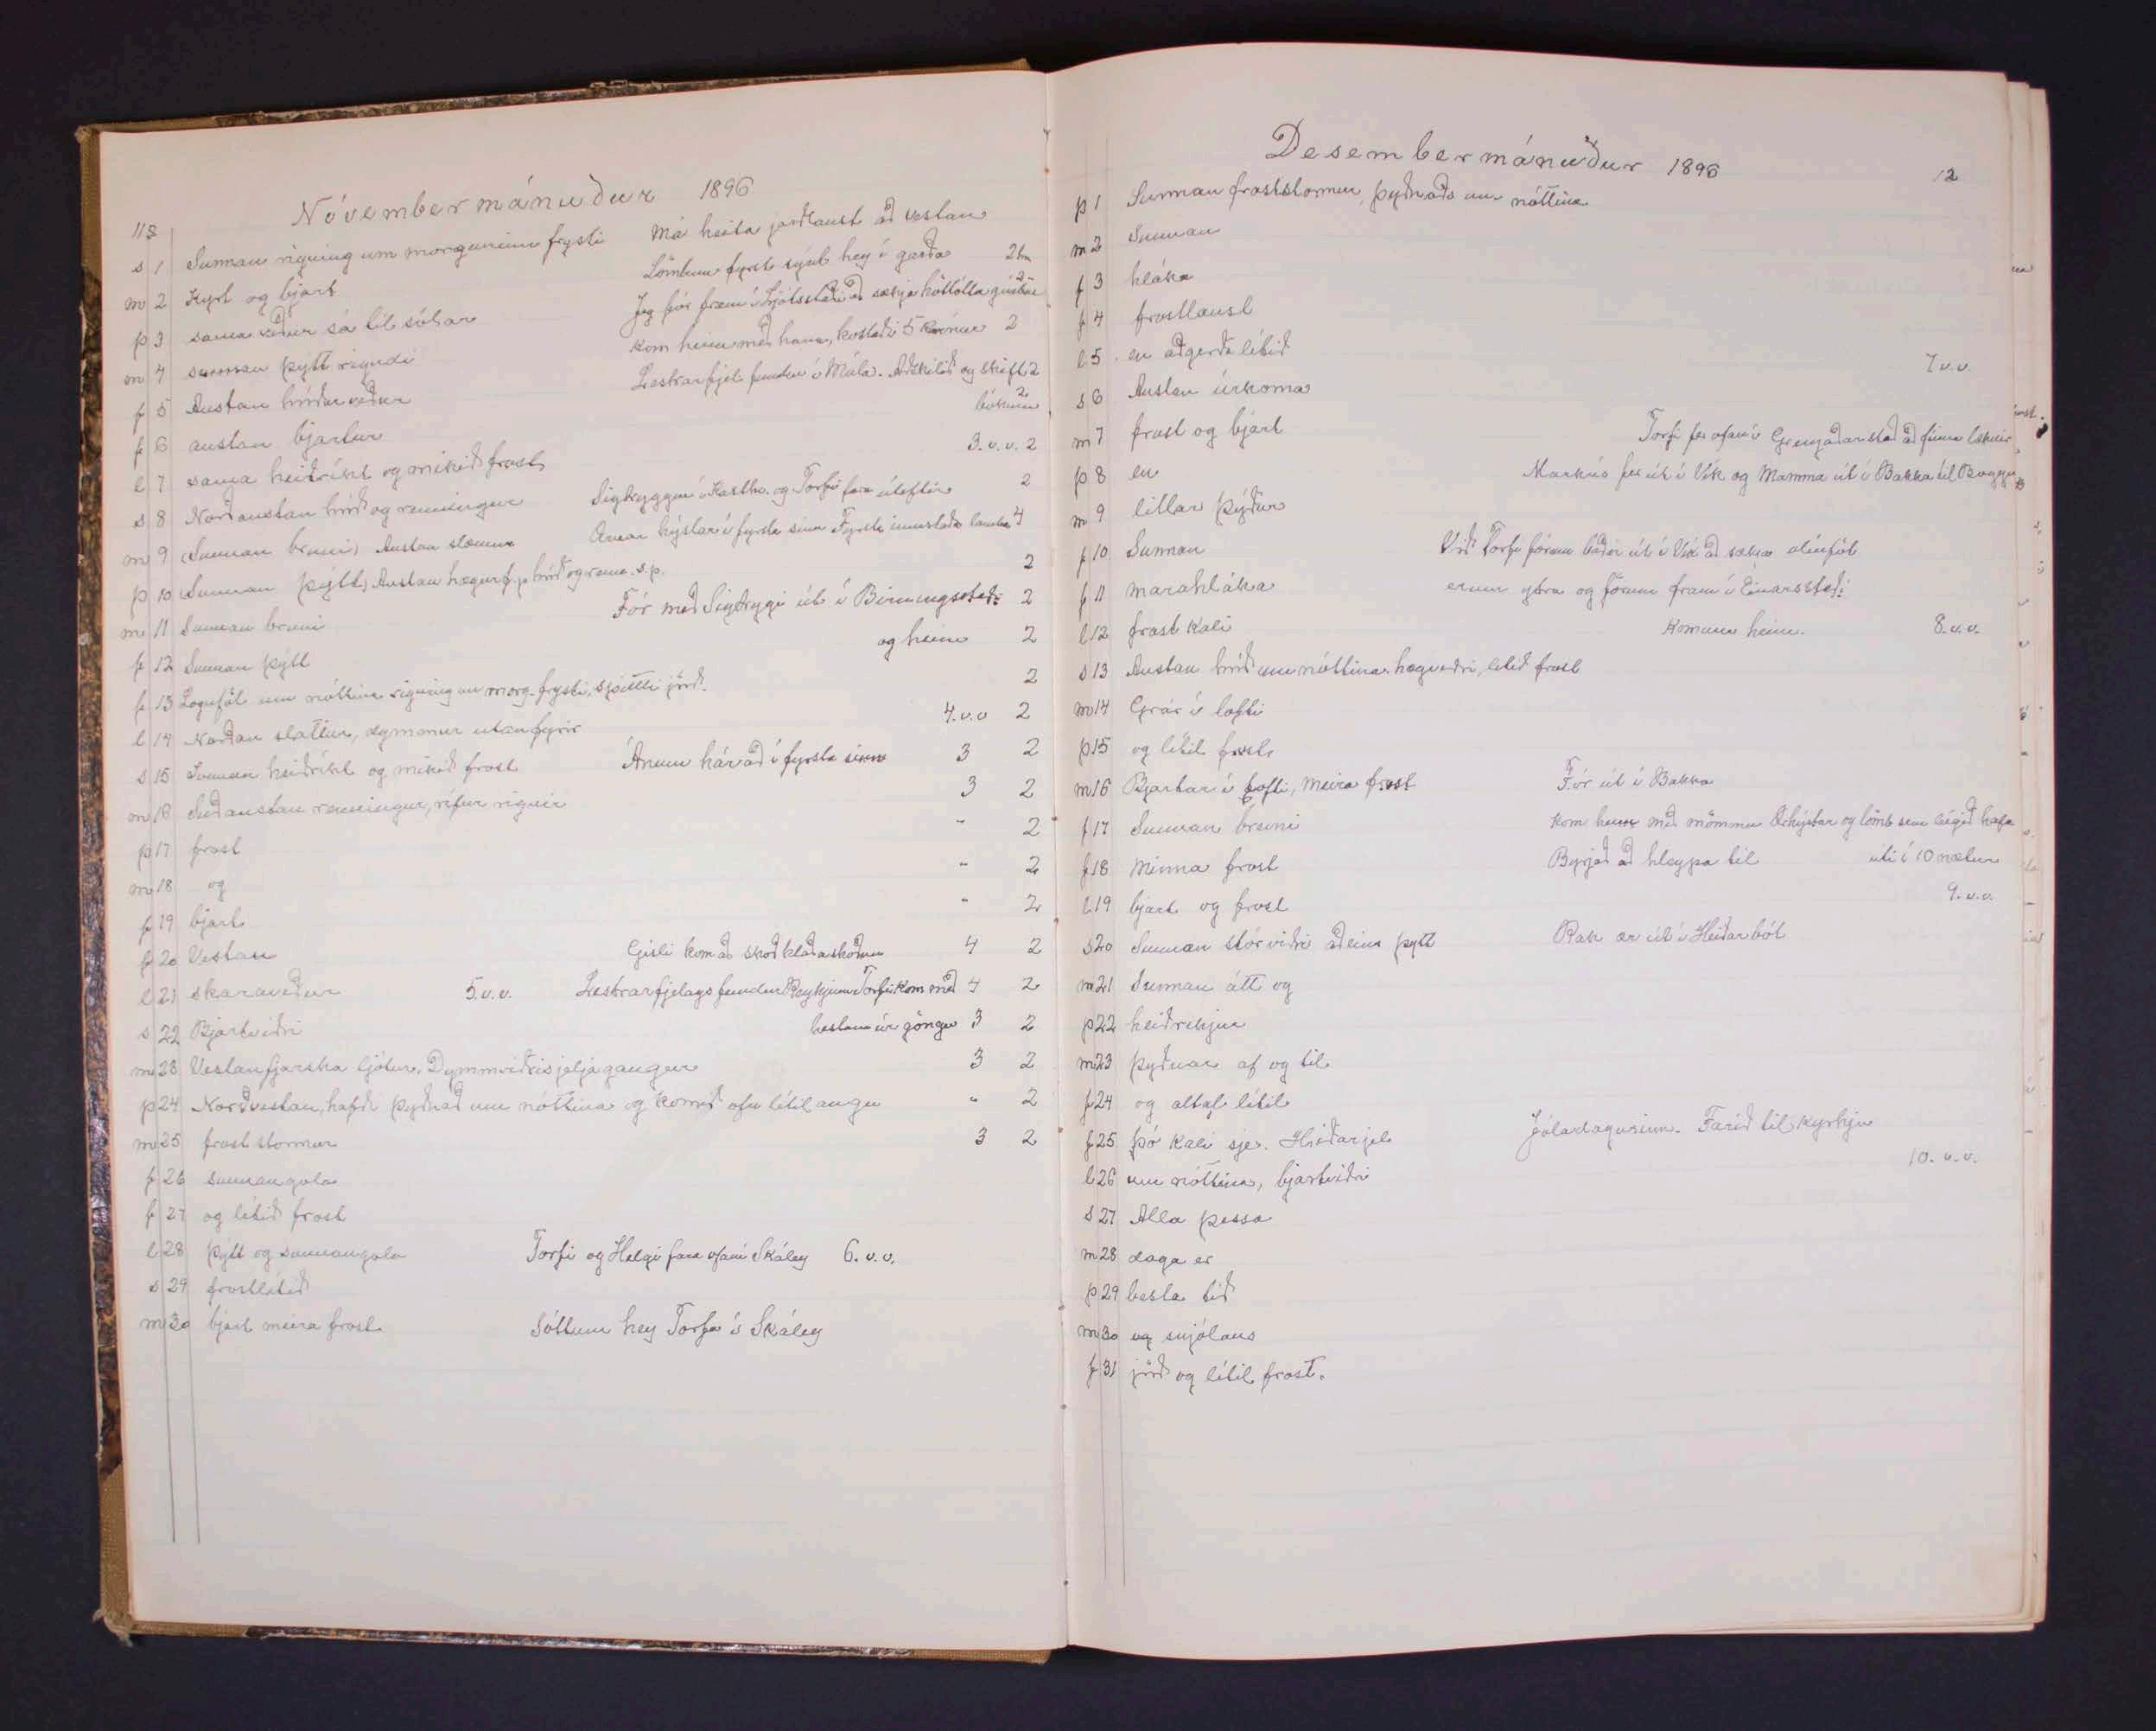 Nóvembermánuður 1896
s 1 Sunnan rigning um morguninn frysti Má heita jarðlaust að vestan
m 2 Kyrt og bjart Lömbum fyrst sýnt hey í garða 2
þ 3 sama veður sá til sólar Jeg fór fram í Ljótsstaði að sækja
m 4 sunnan þýtt rigndi Kom heim með hann, kostaði 5 krónur 2
f 5 Austan hríðarveður Lestrarfjel fundur í Múla. Aðskilið og skift 2
f 6 austan bjartur bókum 2
l 7 sama heiðríkt og mikið frost 3. v. v. 2
s 8 Norðaustan hríð og renningur Sigtryggur í Kasthv. og Torfi fara úteftir 2
m 9 (Sunnan bruni) Austan slæmur Ánar hýstar í fyrsta sinn Fyrsta innistaða lamba 4
þ 10 (Sunnan þýtt) Austan hægur f.p. hríð og renn. s.p. 2
m 11 Sunnan bruni Fór með Sigtryggi út í Birningsstaði 2
f 12 Sunnan þýtt og heim 2
f 13 Lognföl um nóttina rigning um morg. frysti, spillti jörð. 2
l 14 Norðan slattur, dymmur utanfyrir 4. v. v 2
s 15 Sunnan heiðríkt og mikið frost Ánum hárað í fyrsta sinn 3 2
m 16 Suðaustan renningur, rífur rignir 3 2
þ 17 frost " 2
m 18 og " 2
f 19 bjart " 2
f 20 Vestan Gísli kom að skoð kláðaskoðun 4 2
l 21 skaraveður 5. v. v. Lestrarfjelags fundur Reykjum Torfi kom með 4 2
s 22 Bjartviðri hestana úr göngu 3 2
m 23 Vestan fjarska ljótur. Dymmviðris jeljagangur 3 2
þ 24 Norðvestan, hafði þyðnað um nóttina og komið ofur lítil augu " 2
m 25 frost stormur 3 2
f 26 sunnangola
f 27 og lítið frost
l 28 þýtt og sunnangola Torfi og Helgi fara ofaní Skáley 6. v. v.
s 29 frostlítið
m 30 bjart meira frost Sóttum hey Torfa í Skáley
Desembermánuður 1896 12
þ 1 Sunnan froststormur, þyðnaði um nóttina
m 2 Sunnan
f 3 hláka
f 4 frostlaust
l 5 en aðgerðalítið 7 v. v.
s 6 Austan úrkoma
m 7 frost og bjart Torfi fer ofaní Grenjaðarstað að finna læknir
þ 8 en Markús fer út í Vík og Mamma út í Bakka til Boggu
m 9 lítlar þýður
f 10 Sunnan Við Torfi förum báðir út í Vík að sækja
f 11 marahláka erum ytra og förum fram í Einarsstaði
l 12 frost kali Komum heim. 8. v. v.
s 13 Austan hríð um nóttina hægviðri, lítið frost
m 14 Grár í lofti
þ 15 og lítil frost
m 16 Bjartar í lofti, meira frost Fór út í Bakka
f 17 Sunnan bruni Kom heim með mömmu Ær hýstar og lömb sem legið hafa
f 18 Minna frost Byrjað að hleypa til úti í 10 nætur
l 19 bjart og frost 9. v. v.
s 20 Sunnan stórviðri aðeins þytt Rak ær út í Heiðarból
m 21 Sunnan átt og
þ 22 heiðrikjur
m 23 þyðnar af og til
f 24 og altaf lítil
f 25 þó kali sje. Hríðarjel Jóladagurinn. Farið til kyrkju
l 26 um nóttina, bjartviðri 10. v. v.
s 27 Alla þessa
m 28 daga er
þ 29 besta tíð
m 30 og snjólaus
f 31 jörð og lítil frost.